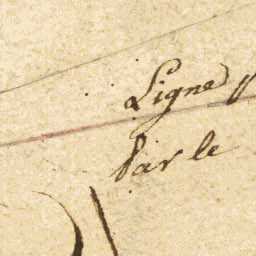 Ligne
Par le